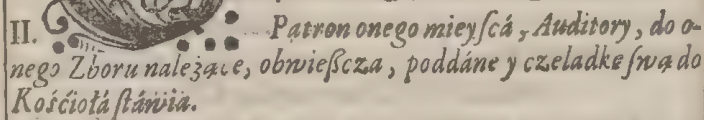 II. Patron onego mieyſcá, Auditory, do o-
nego Zboru należące, obwieſzcza, poddáne y czeladkę ſwą do
Kośćiołá ſtáwia.